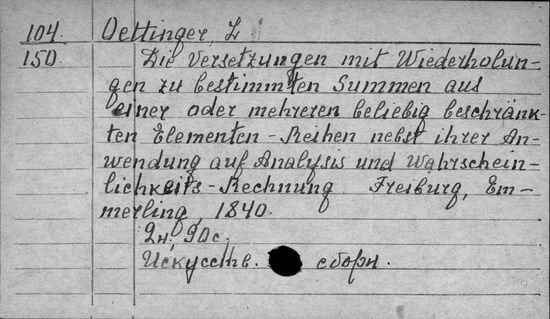 104. Oettinger, L.
150. Die Versetzungen mit Wiederholun-
gen zu bestimmten Summen aus
einer oder mehreren beliebig beschränk-
ten Elementen-Reihen nebst ihrer An-
wendung auf Analysis und Wahrschein-
lichkeits-Rechnung Freiburg, Em-
merling, 1840.
2н, 90с.
Искусств. сборн.